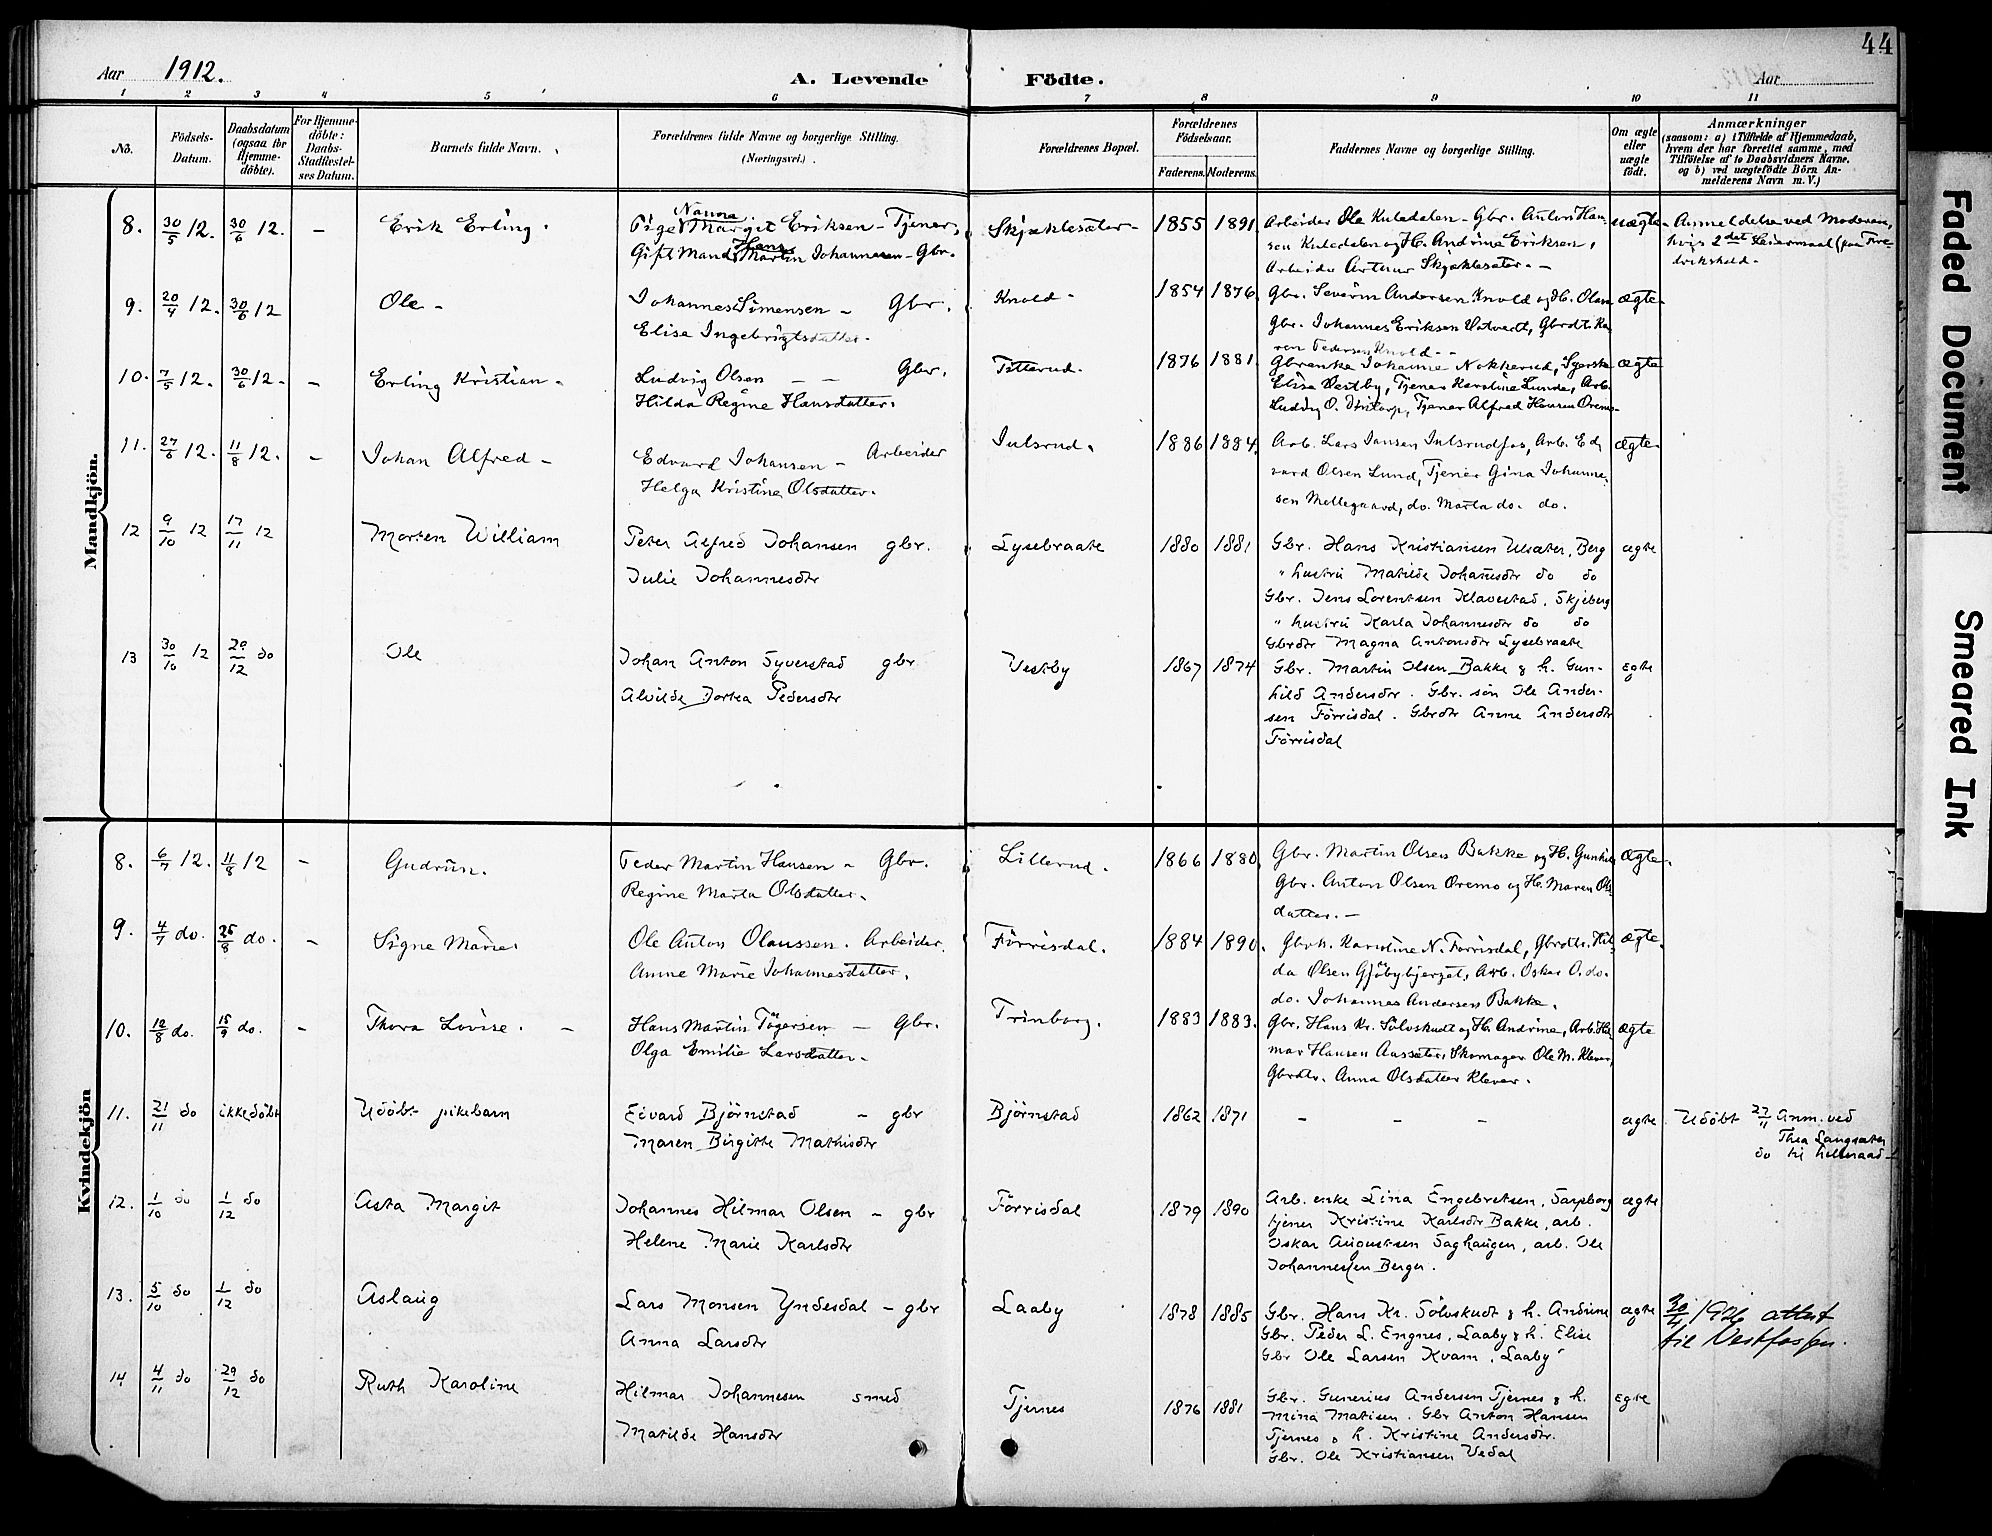 44
Aar 1912.
A. Levende Födte.
Aar
1 2 3 4 5 6 7 8 9 10 11
No.
Födsels-Datum.
Daabsdatum (ogsaa for Hjemmedöbte).
For Hjemmedöbte: Daabs-Stadfæstelses Datum.
Barnets fulde Navn.
Forældrenes fulde Navne og borgerlige Stilling.
(Næringsvei.)
Forældrenes Bopæl.
Forældrenes Födselsaar.
Faderens. Moderens.
Faddernes Navne og borgerlige Stilling.
Om ægte eller uægte födt.
Anmærkninger
(saasom: a) i Tilfælde af Hjemmedaab,
hvem der har forrettet samme, med
Tilföielse af to Daabsvidners Navne,
og b) ved uægtefödte Börn An-
melderens Navn m. V.)
Mandkjön.
8. 30/5 12. 30/6 12. – Erik Erling.
Pige Nanna Margit Eriksen – Tjener,
Gift Mand Hans Martin Johannesen – Gbr.
Skjæklesæter – 1855 1891
Arbeider Ole Kuledalen – Gbr. Anton Han-
sen Kuledalen og H. Andrine Eriksen,
Arbeider Artur Skjæklesæter. –
uægte
Anmeldelse ved Moderen,
hvis 2det Leiermaal (paa Fre-
drikshald.
9. 20/4 12. 30/6 12 Ole –
Johannes Simensen – Gbr.
Elise Ingebrigtsdatter.
Knold – 1854 1876.
Gbr. Severin Andersen Knold og H. Olava
Gbr. Johannes Eriksen Vatvedt, Gbrdtr. Ka-
ren Pedersen Knold –
ægte
10. 7/5 12. 30/6 12. – Erling Kristian –
Ludvig Olsen – – Gbr.
Hilda Regine Hansdatter.
Titterud. 1876 1881.
Gbrenke Johanne Nokkerud, Syerske
Elise Vestby, Tjener Karoline Lunde, Arb.
Ludvig O. Ututorp, Tjener Alfred Hansen Oremo
ægte
11. 27/6 12. 11/8 12. – Johan Alfred –
Edvard Johansen – Arbeider
Helga Kristine Olsdatter.
Julsrud. 1886 1884.
Arb. Lars Jansen Julsrudfos, Arb. Ed-
vard Olsen Lund, Tjener Gina Johanne-
sen Mellegaard, do. Marta do. do.
ægte
12 9/10 12 17/11 12 Morten William
Peter Alfred Johansen gbr.
Julie Johannesdtr
Lysebraate 1880 1881
Gbr. Hans Kristiansen Ulsæter, Berg
" hustru Matilde Johansdtr do do
Gbr. Jens Lorentsen Klavestad, Skjeberg
" hustru Karla Johannesdtr do do
Gbrdtr Magna Antonsdtr Lysebraate
ægte
13 30/10 12 29/12 do Ole
Johan Anton Syverstad gbr
Alvilde Dortea Pedersdtr
Vestby 1867 1874
Gbr. Martin Olsen Bakke & h. Gun-
hild Andersdtr. Gbr. søn Ole Ander-
sen Förrisdal. Gbrdtr Anne Andersdtr
Förrisdal
egte
Kvindekjön
8. 6/7 12. 11/8 12 – Gudrun.
Peder Martin Hansen – Gbr.
Regine Marta Olsdatter.
Lillerud. 1866 1880
Gbr. Martin Olsen Bakke og H. Gunhild
Gbr. Anton Olsen Oremo og H. Maren Ols-
datter. –
ægte.
9. 4/7 do. 25/8 do. – Signe Marie.
Ole Anton Olaussen. Arbeider.
Anne Marie Johannesdatter.
Förrisdal. 1884 1890.
Gbrk. Karoline N. Förrisdal, Gbrdtr. Hil-
da Olsen Gjöbybjerget, Arb. Oskar O. do.
do. Johannes Andersen Bakke.
ægte.
10. 12/8 do. 15/9 do. – Thora Lovise. –
Hans Martin Tögersen – Gbr.
Olga Emilie Larsdatter –
Trinborg. 1883 1883.
Gbr. Hans Kr. Sölvskudt og H. Andrine, Arb. Hel-
mar Hansen Aassæter, Skomager Ole M. Klever,
Gbrdtr. Anna Olsdatter Klever.
ægte
11. 21/11 do ikke döbt Udöbt pikebarn
Eivard Björnstad – gbr
Maren Birgitte Mathisdtr
Björnstad 1862 1871
– – –
ægte
Udöbt 27/11 Anm. ved
Thea Langsæter
do til
12. 1/10 do 1/12 do Asta Margit
Johannes Hilmar Olsen – gbr
Helene Marie Karlsdtr
Förrisdal 1879 1890
Arb. enke Lina Engebretsen, Sarpborg
tjener Kristine Karlsdtr Bakke, arb.
Oskar Augustsen Saghaugen, arb. Ole
Johannessen Berger.
ægte
13. 5/10 do 1/12 do Aslaug
Lars Monsen Yndesdal – gbr
Anna Larsdtr
Laaby 1878 1885
Gbr. Hans Kr. Sölvskudt & h. Andrine
Gbr. Peder L. Engnes, Laaby & h. Elise
Gbr Ole Larsen Kvam, Laaby
ægte
30/4 1926 attest
til Vestfossen.
14 4/11 do 29/12 do Ruth Karoline
Hilmar Johannesen smed
Matilde Hansdtr
Tjernes 1876 1881
Gbr. Gunerius Andersen Tjernes & h.
Mina Matisen. Gbr Anton Hansen
Tjernes & h. Kristine Andersdtr.
Gbr. Ole Kristiansen Vedal
egte
Faded Document
Smeared Ink